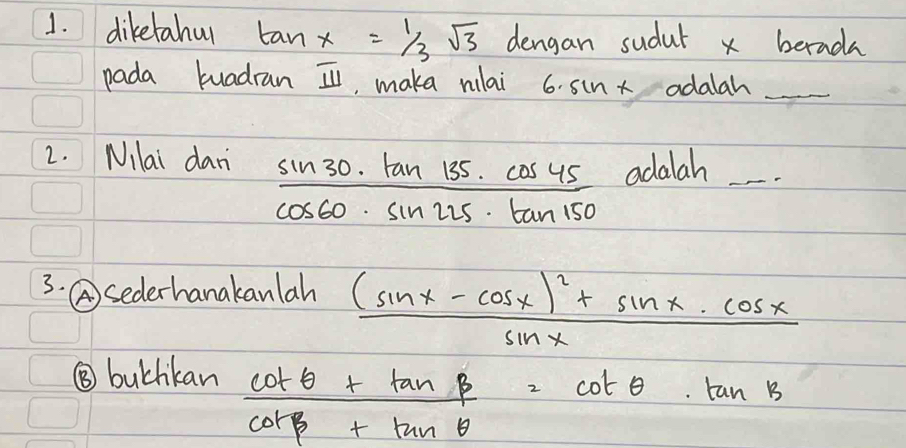 1. diketahui tan x = 1/3 √3 dengan sudut x berada
pada kuadran III, maka nilai 6. sin x adalah ___
2. Nilai dari sin 30 . tan 135 . cos 45 adalah ___.
cos 60 . sin 225 . tan 150
3. Ⓐ sederhanakanlah (sin x - cos x)² + sin x . cos x
sin x
Ⓑ buktikan cot θ + tan β = cot θ . tan β
cot β + tan θ